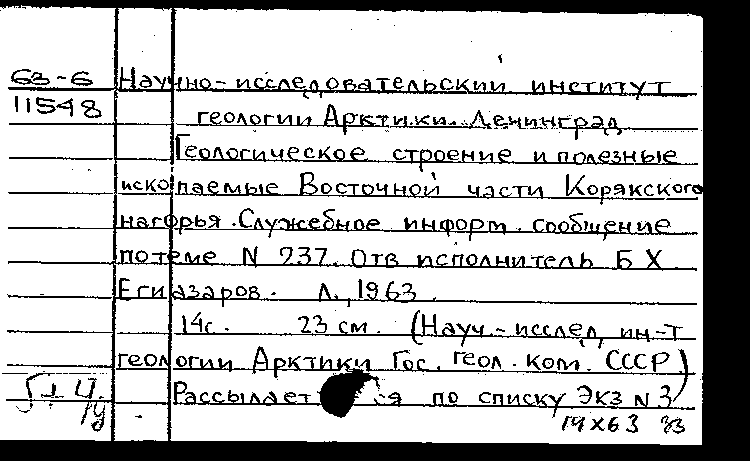 63-6
11548
Научно-исследовательский институт
геологии Арктики. Ленинград
Геологическое строение и полезные
ископаемые Восточной части Корякского
нагорья. Служебное информ. сообщение
по теме N 237. Отв исполнитель Б Х
Егиазаров. Л., 1963.
14с. 23 см. (Науч.-исслед, ин-т
геологии Арктики Гос. геол. ком. СССР)
Рассылает ся по списку Экз N 3
19 X 63